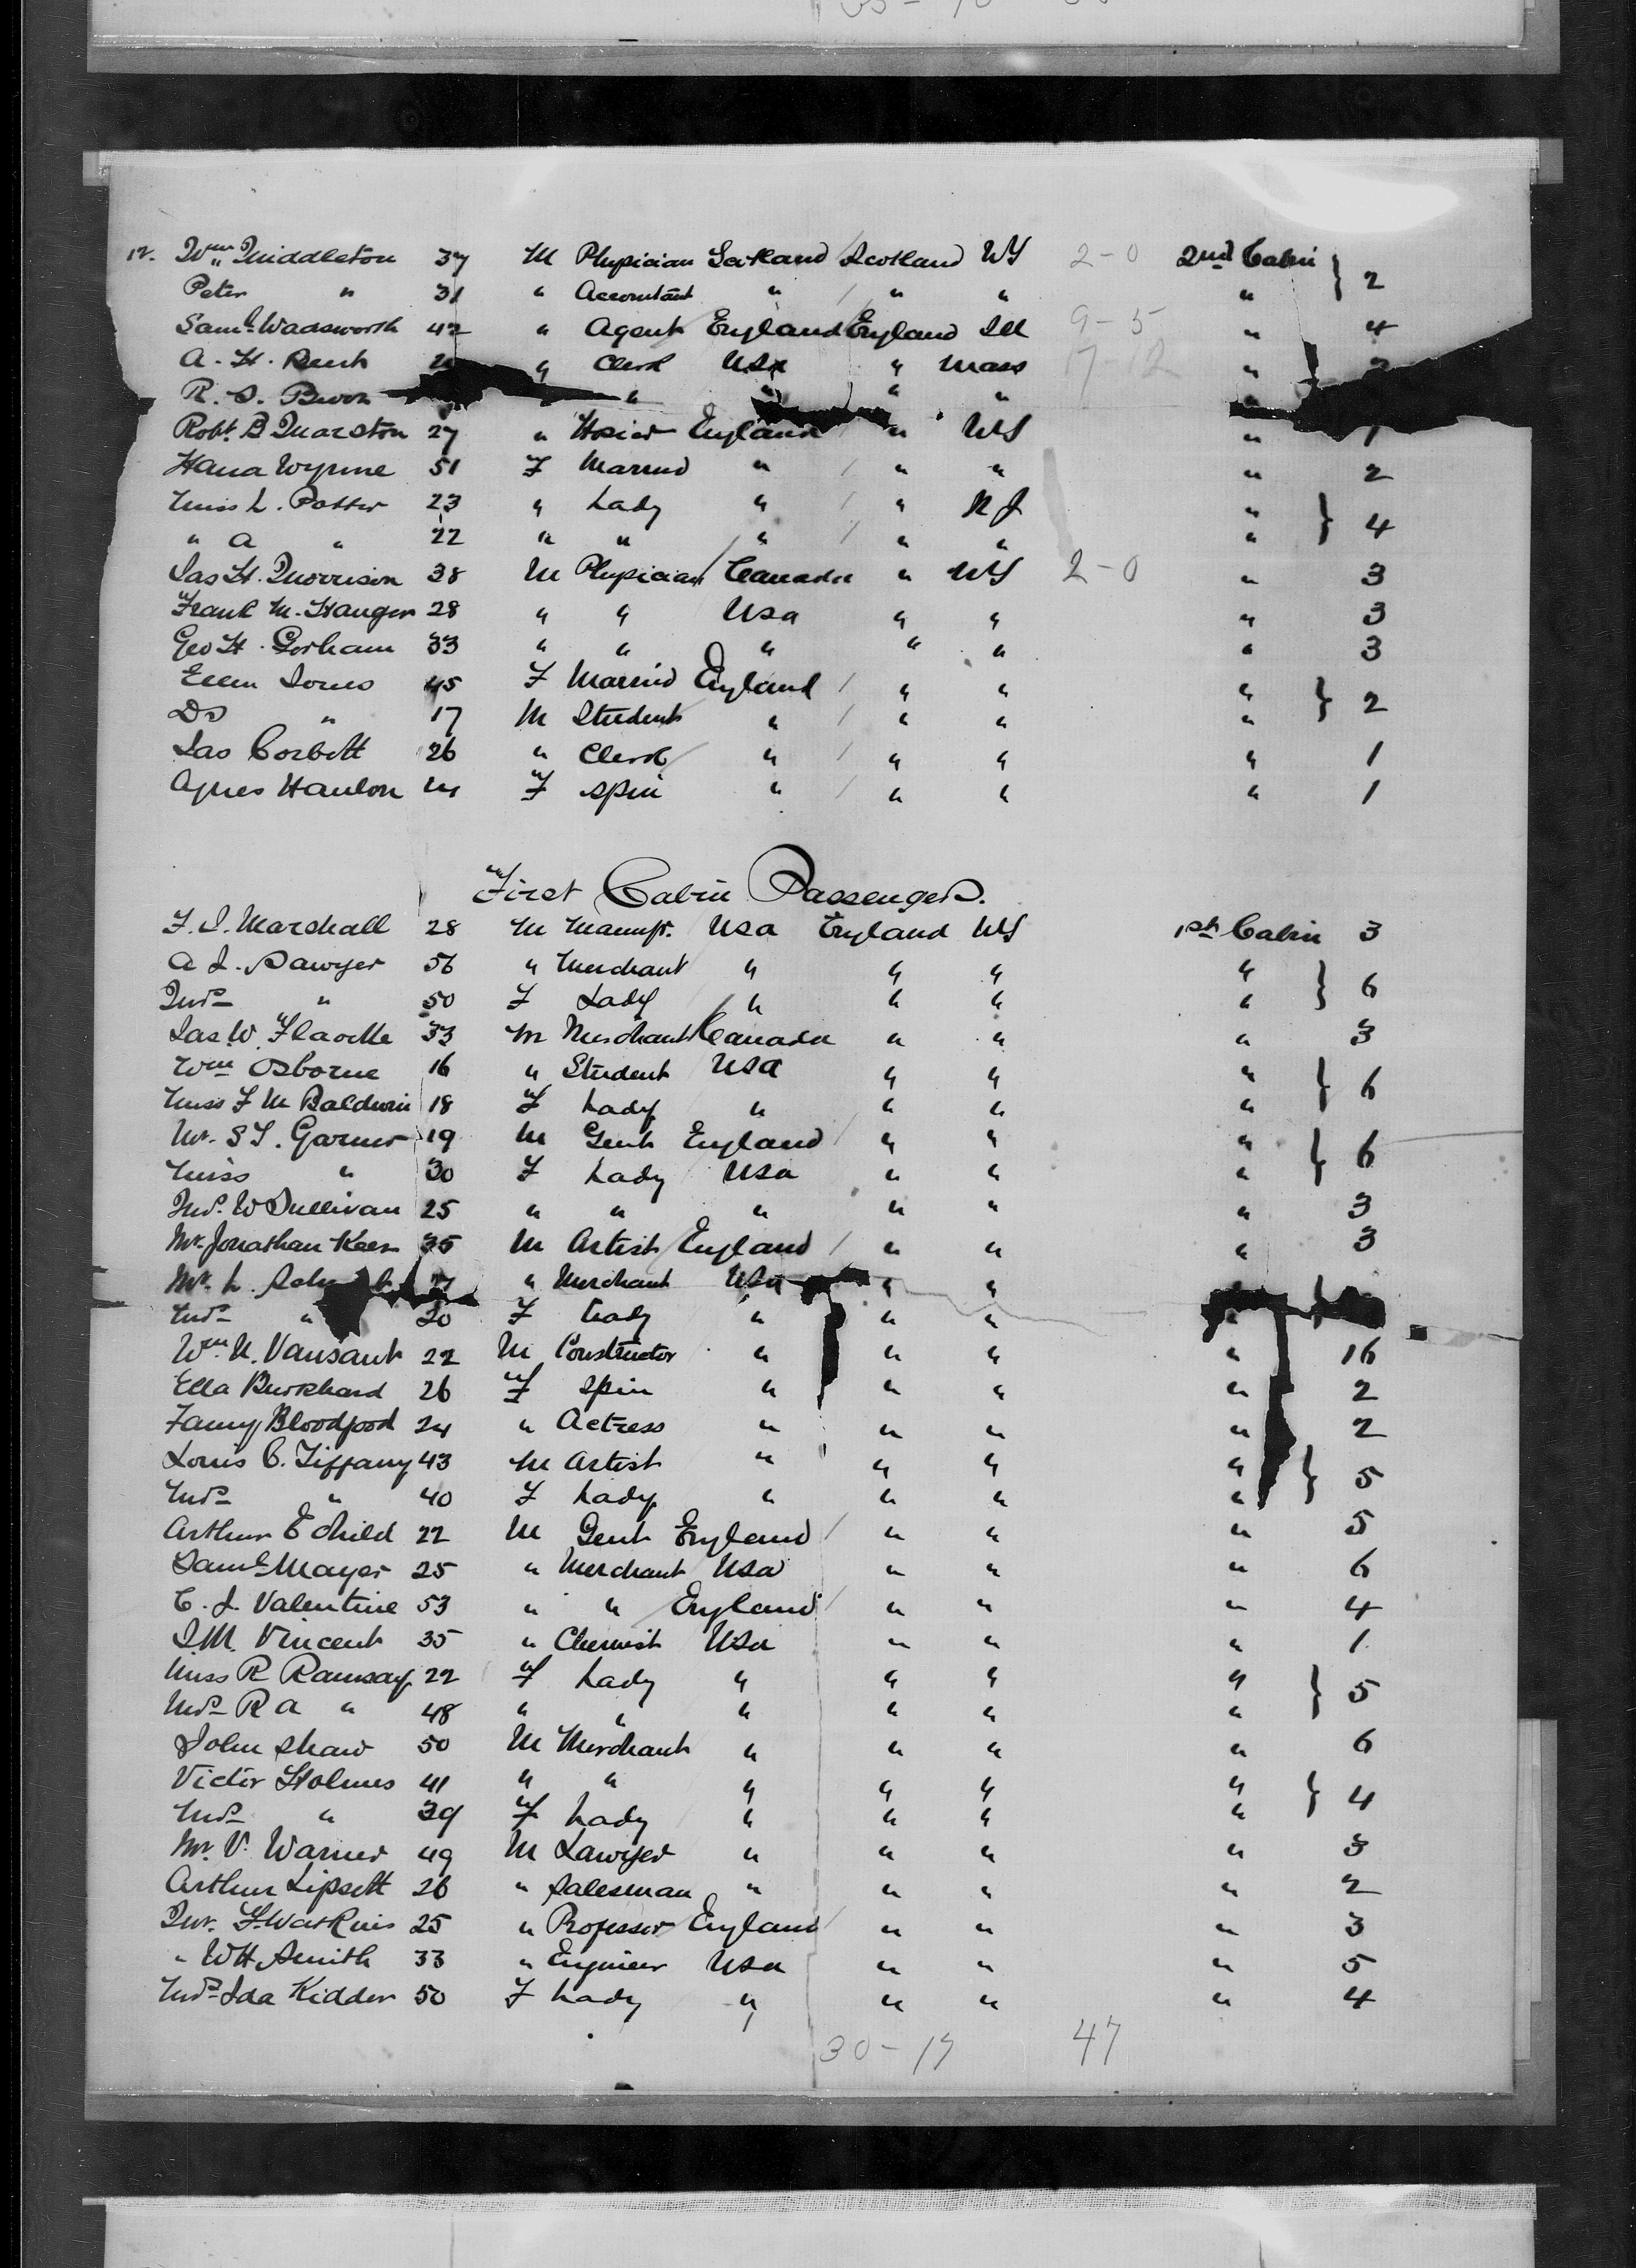 12. Wm Middleton 37 M Physician Scotland Scotland NY 2-0 2nd Cabin } 2
Peter " 31 " Accountant " " " "
Saml Wadsworth 42 " Agent England England Ill 9-5 " 4
A. H. " Clerk USA " Mass "
R. S. " " "
Robt. B Marston 27 " Hosier England " NY " 1
Hana Wynne 51 F Married " " " " 2
Miss L. Potter 23 " Lady " " N J " } 4
" A " 22 " " " " " "
Jas H. Morrison 38 M Physician Canada " NY 2-0 " 3
Frank M. Hanger 28 " " USA " " " 3
Geo H. Gorham 33 " " " " " " 3
Ellen Jones 45 F Married England " " " } 2
Do " 17 M Student " " " "
Jas Corbett 26 " Clerk " " " " 1
Agnes Hanlon 24 F Spin " " " " 1
First Cabin Passengers.
F. J. Marshall 28 M Manufr. USA England NY 1st Cabin 3
A J. Sawyer 56 " Merchant " " " " } 6
Mrs " 50 F Lady " " " "
Jas. W. Flavelle 33 M Merchant Canada " " " 3
Wm Osborne 16 " Student USA " " " } 6
Miss F M Baldwin 18 F Lady " " " "
Mr. S T. Garner 19 M Gent England " " " } 6
Miss " 30 F Lady USA " " "
Mrs. W Sullivan 25 " " " " " " 3
Mr. Jonathan 35 M Artist England " " " 3
Mr. L. " Merchant USA " " }
Mrs " 20 F Lady " " " "
Wm. N. Vansant 22 M Constructor " " " " 16
Ella Burkhard 26 F Spin " " " " 2
Fanny Bloodgood 24 " Actress " " " " 2
Louis C. Tiffany 43 M Artist " " " " } 5
Mrs " 40 F Lady " " " "
Arthur E Child 22 M Gent England " " " 5
Saml Mayer 25 " Merchant USA " " " 6
C. J. Valentine 53 " " England " " " 4
J. M. Vincent 35 " Chemist USA " " " 1
Miss R Ramsay 22 F Lady " " " " } 5
Mrs R A " 48 " " " " " "
John Shaw 50 M Merchant " " " " 6
Victor Holmes 41 " " " " " " } 4
Mrs " 39 F Lady " " " "
Mr. V. Warner 49 M Lawyer " " " " 3
Arthur Lipsett 26 " Salesman " " " " 2
Mr. F. Watkins 25 " Professor England " " " 3
" W H Smith 33 " Engineer USA " " " 5
Mrs. Ida Kidder 50 F Lady " " " " 4
30-17 47